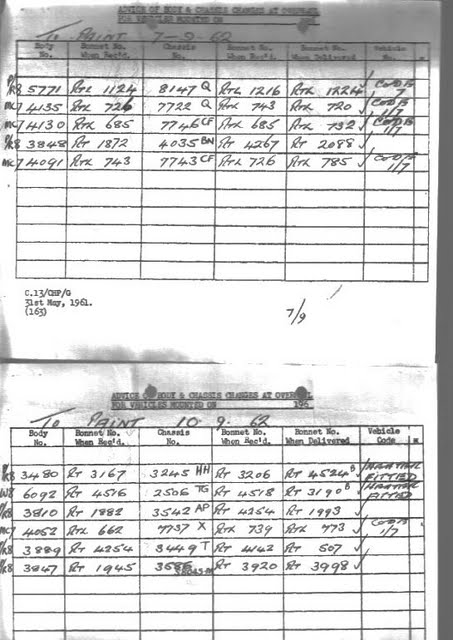 ADVICE OF BODY & CHASSIS CHANGES AT OVERHAUL
FOR VEHICLES MOUNTED ON 196
To PAINT 7-9-62
Body No. Bonnet No. When Rec'd. Chassis No. Bonnet No. When Rec'd. Bonnet No. When Delivered Vehicle No.
5771 RTL 1124 8147 Q RTL 1216 RTL 1224 ✓ CODE 1/7
MC7 4135 RTL 726 7722 Q RTL 743 RTL 720 ✓ CODE 1/7
MC7 4130 RTL 685 7746 CF RTL 685 RTL 732 ✓ CODE 1/7
3848 RT 1872 4035 BN RT 4267 RT 2088 ✓
MC7 4091 RTL 743 7743 CF RTL 726 RTL 785 ✓ CODE 1/7
C.13/CHP/G
31st May, 1961.
(163)
7/9
ADVICE OF BODY & CHASSIS CHANGES AT OVERHAUL
FOR VEHICLES MOUNTED ON 196
To PAINT 10-9-62
Body No. Bonnet No. When Rec'd. Chassis No. Bonnet No. When Rec'd. Bonnet No. When Delivered Vehicle Code
3480 RT 3167 3245 HH RT 3206 RT 4524 B HEATER FITTED
6092 RT 4516 2506 TG RT 4518 RT 3190 B HEATER FITTED
3810 RT 1882 3542 AP RT 4254 RT 1993 ✓
MC7 4052 RTL 662 7737 X RTL 739 RTL 773 ✓ CODE 1/7
3889 RT 4254 3449 T RT 4142 RT 507 ✓
3847 RT 1945 RT 3920 RT 3998 ✓